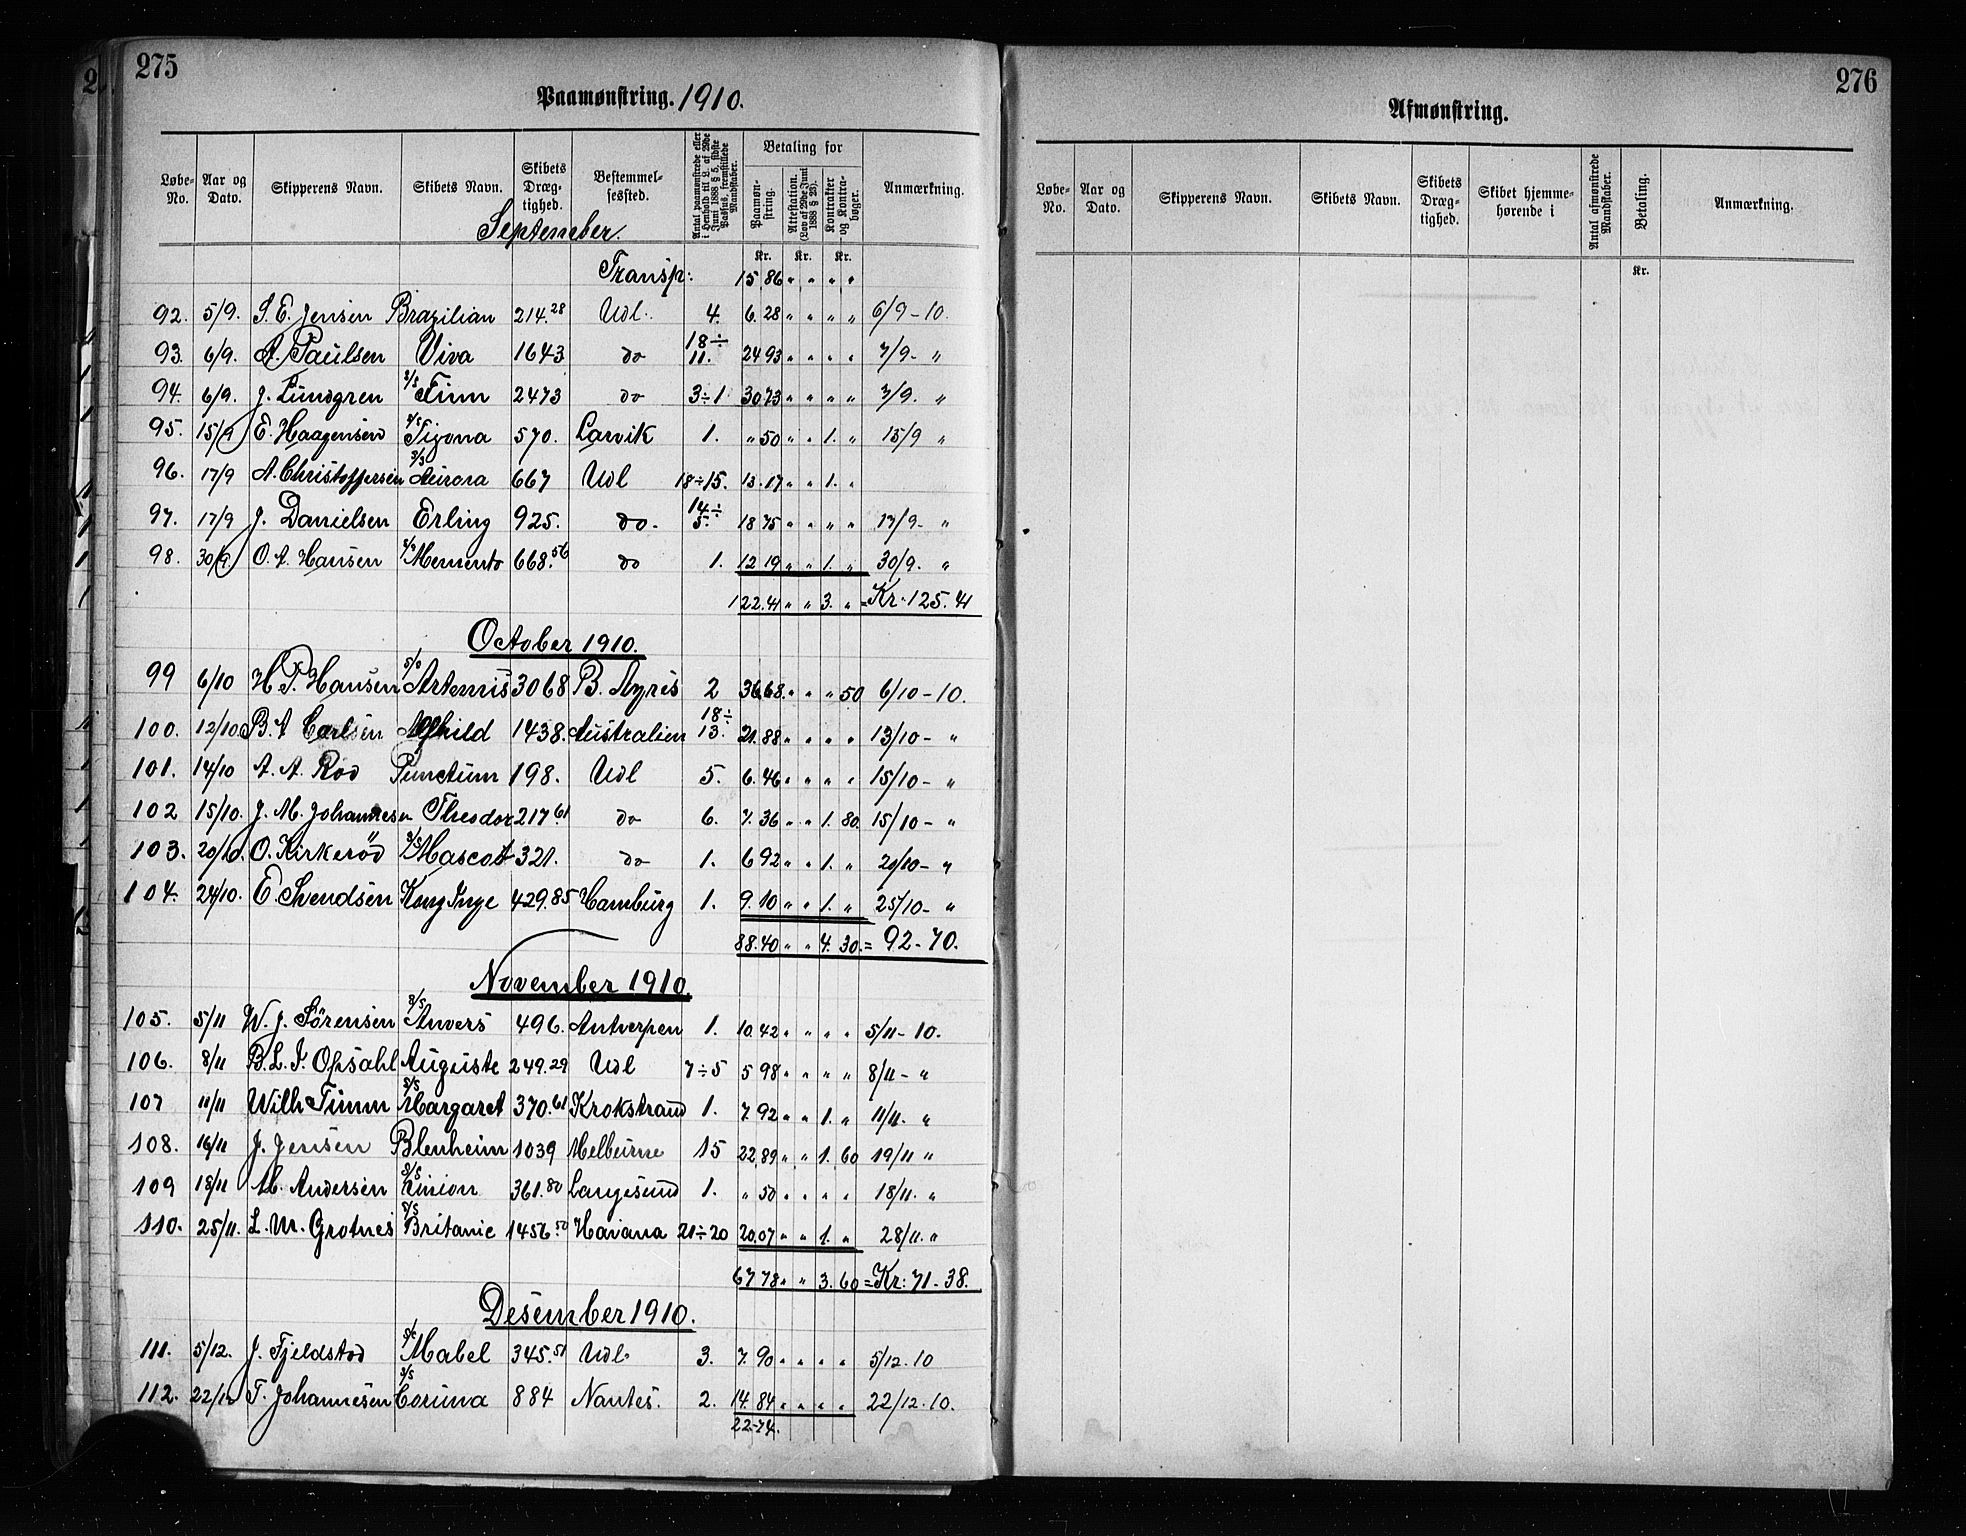 275
Paamønstring. 1910.
Løbe-No. Aar og Dato. Skipperens Navn. Skibets Navn. Skibets Dræg-tighed. Bestemmel-sessted. Antal paamønstrede eller i Henhold til L. af 29de Juni 1888 § 5, sidste Passus, fremstillede Mandskaber. Betaling for Paamøn-string. Attestation. (Lov af 29de Juni 1888 § 23). Kontrakter og Kontra-bøger. Anmærkning.
September.
Kr. Kr. Kr.
Transp: 15 86 " " " "
92. 5/9. S. E. Jensen Brazilian 214.28 Udl. 4. 6.28 " " " " 6/9-10.
93. 6/9. A. Paulsen Viva 1643 do 18÷11. 24 93 " " " " 7/9- "
94. 6/9. J. Lundgren S/S Finn 2473 do 3÷1 30 73 " " " " 7/9. "
95. 15/9 E. Haagensen S/S Fizona 570. Larvik 1. " 50 " " 1. " 15/9 "
96. 17/9 A. Christoffersen S/S Aurora 667 Udl 18÷15. 13.17 " " 1. "
97. 17/9 J. Danielsen Erling 925. do. 14÷5. 18 75 " " " " 17/9- "
98. 30/9 O. A. Hansen S/S Memento 668.56 do 1. 12 19 " " 1. " 30/9. "
122.41 " " 3. " = Kr. 125.41
October 1910.
99 6/10 H. P. Hansen S/S Artemis 3068 B. Ayris 2 36,68. " " " 50 6/10-10.
100. 12/10 B. A Carlsen Alfhild 1438. Australien 18÷13. 21.88 " " " " 13/10- "
101. 14/10 A. A. Rød Punctum 198. Udl 5. 6.46 " " " " 15/10- "
102 15/10. J. M. Johannesen Theodor 217.61 do 6. 7.36 " " 1. 80. 15/10- "
103. 20/10. O. Kirkerød S/S Mascot 321. do 1. 6 92 " " 1. " 20/10- "
104. 24/10. E. Svendsen Kong Inge 429.85 Hamburg 1. 9.10 " " 1. " 25/10- "
88.40 " " 4. 30. = 92-70.
November 1910.
105. 5/11 W. J. Sörensen S/S Anvers 496. Antverpen 1. 10.42 " " " " 5/11-10.
106. 8/11 B. L. F. Opsahl Auguste 249.29 Udl 7÷5 5 98 " " " " 8/11- "
107 11/11 Wilh Timm S/S Margaret 370.61 Krokstrand 1. 7.92 " " 1. " 11/11. "
108. 16/11 J. Jensen Blenheim 1039 Melburne 15 22,89 " " 1. 60 19/11 "
109 18/11 M. Andersen S/S Union 361.80 Langesund 1. " 50 " " " " 18/11. "
110. 25/11. L. M. Grotnes S/S Britanic 1456.50 Havana 21÷20 20,07 " " 1. " 28/11. "
67 78 " " 3. 60 = Kr: 71-38.
Desember 1910.
111. 5/12. J. Fjeldstad S/S Mabel 345.51 Udl. 3. 7.90 " " " " 5/12.10
112. 22/12 T. Johannesen S/S Coruna 884 Nantes. 2. 14.84 " " " " 22/12.10.
22-74.
276
Afmønstring.
Løbe-No. Aar og Dato. Skipperens Navn. Skibets Navn. Skibets Dræg-tighed. Skibet hjemme-hørende i Antal afmønstrede Mandskaber. Betaling. Anmærkning.
Kr.